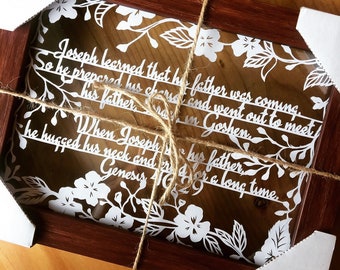 Joseph learned that his father was coming
So he prepared his chariot and went out to meet
his father in Goshen.
When Joseph his father,
he hugged his neck and for a long time.
Genesis